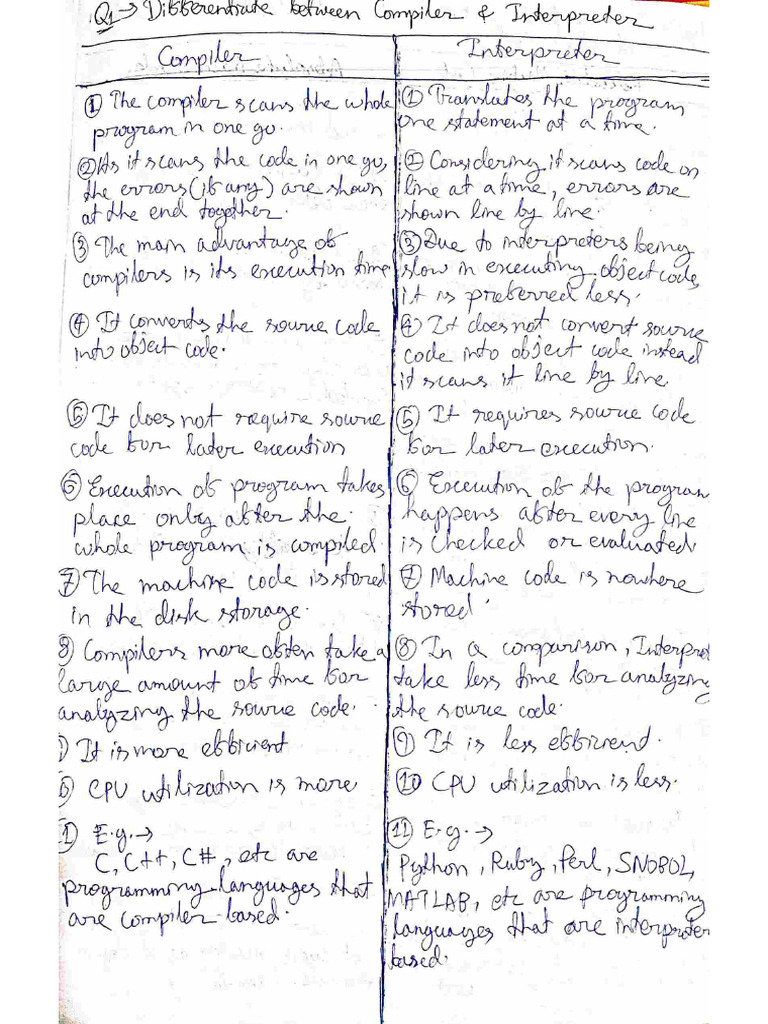 Q1→ Differentiate between Compiler & Interpreter
Compiler
① The compiler scans the whole
program in one go.
② As it scans the code in one go,
the errors (if any) are shown
at the end together.
③ The main advantage of
compilers is its execution time
④ It converts the source code
into object code.
⑤ It does not require source
code for later execution
⑥ Execution of program takes
place only after the
whole program is compiled
⑦ The machine code is stored
in the disk storage.
8) Compilers more often take a
large amount of time for
analyzing the source code.
) It is more efficient
) CPU utilization is more
) E.g. →
C, C++, C#, etc are
programming languages that
are compiler-based.
Interpreter
① Translates the program
one statement at a time.
② Considering it scans code on
line at a time, errors are
shown line by line.
③ Due to interpreters being
slow in executing object code,
it is preferred less.
④ It does not convert source
code into object code instead
it scans it line by line.
⑤ It requires source code
for later execution.
⑥ Execution of the program
happens after every line
is checked or evaluated.
⑦ Machine code is nowhere
stored.
⑧ In a comparison, Interpret
take less time for analyzing
the source code.
⑨ It is less efficient.
⑩ CPU utilization is less.
⑪ E.g. →
Python, Ruby, Perl, SNOBOL,
MATLAB, etc are programming
languages that are interpreter
based.